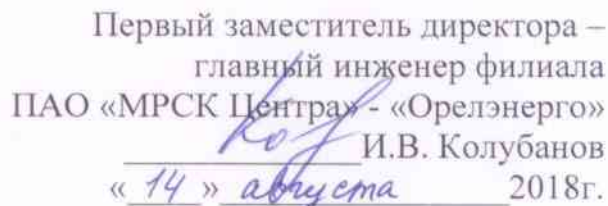 Первый заместитель директора –
главный инженер филиала
ПАО «МРСК Центра» - «Орелэнерго»
И.В. Колубанов
« 14 » августа 2018г.